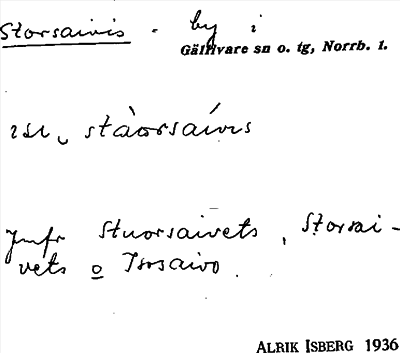 Storsaivis - by i
Gällivare sn o. tg, Norrb. l.
stàorsaívıs
Jmfr Stuorsaivets, Storsai-
vets o Isosaivo.
ALRIK ISBERG 1936